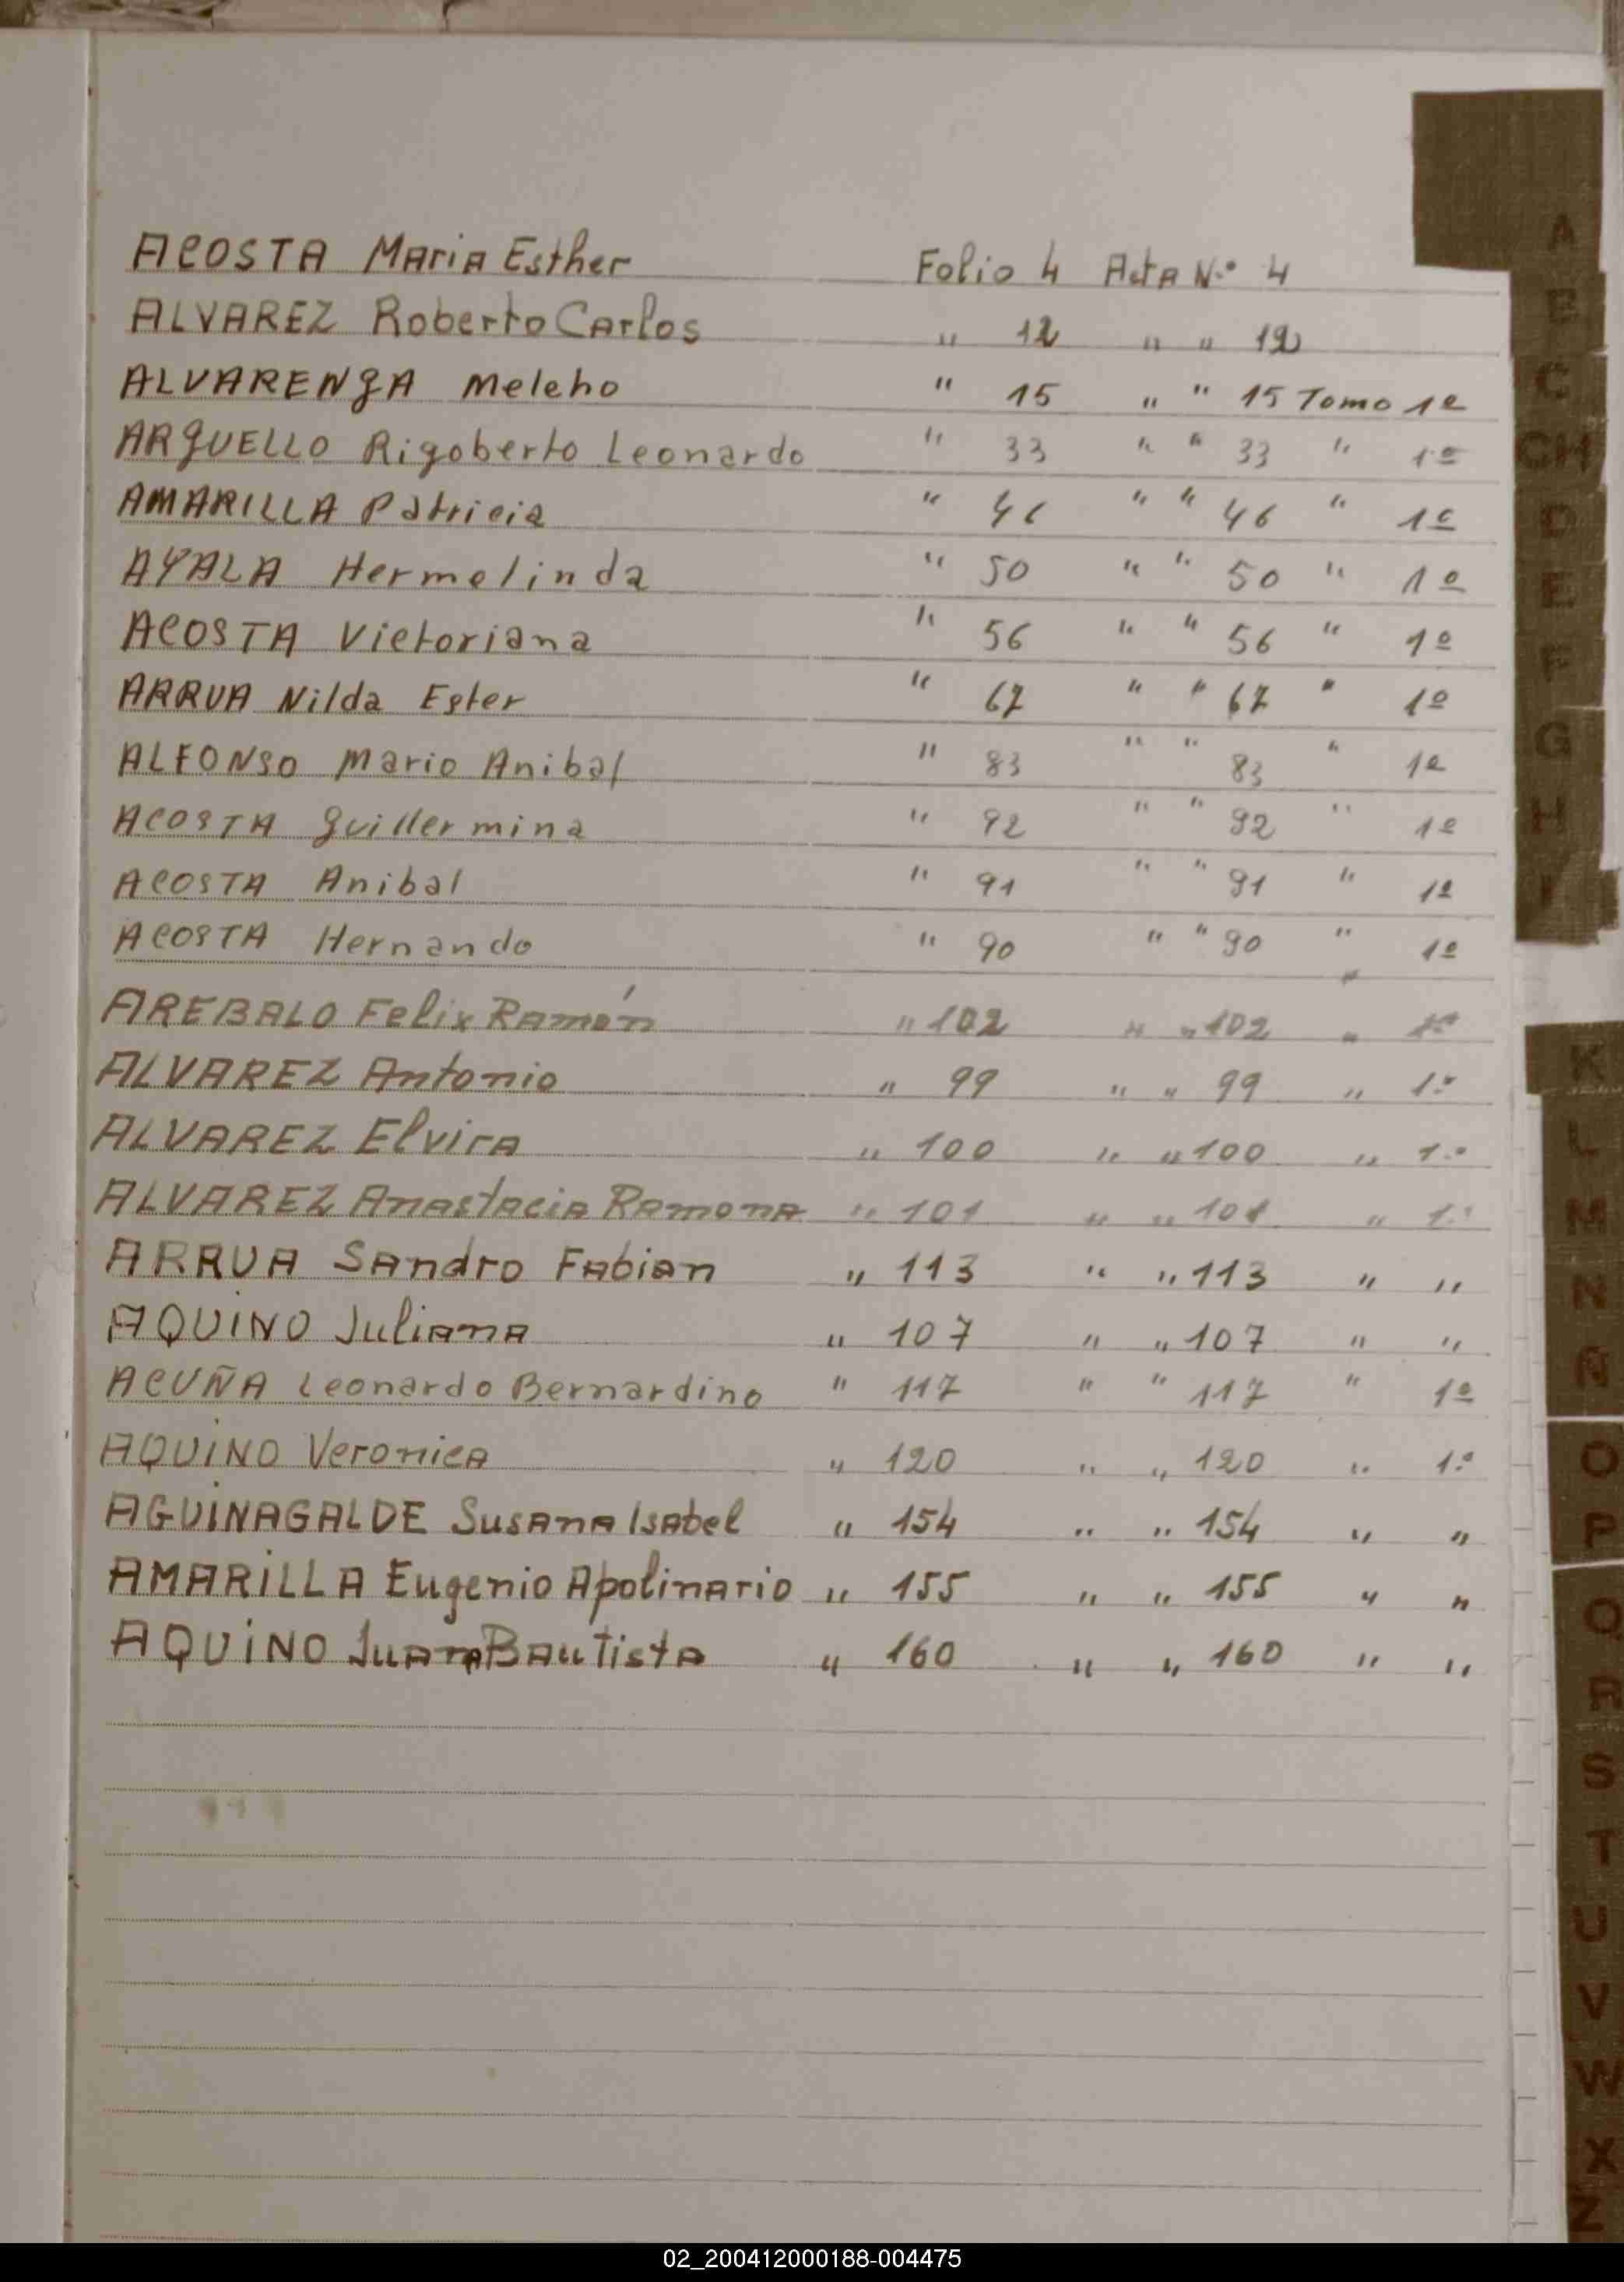 ACOSTA Maria Esther Folio 4 Acta N.º 4
ALVAREZ Roberto Carlos " 12 " " 12
ALVARENGA Melcho " 15 " " 15 Tomo 1º
ARGUELLO Rigoberto Leonardo " 33 " " 33 " 1º
AMARILLA Patricia " 46 " " 46 " 1º
AYALA Hermelinda " 50 " " 50 " 1º
ACOSTA Victoriana " 56 " " 56 " 1º
ARRUA Nilda Ester " 67 " " 67 " 1º
ALFONSO Mario Anibal " 83 " " 83 " 1º
ACOSTA Guillermina " 92 " " 92 " 1º
ACOSTA Anibal " 91 " " 91 " 1º
ACOSTA Hernando " 90 " " 90 " 1º
AREBALO Felix Ramón " 102 " " 102 " 1º
ALVAREZ Antonio " 99 " " 99 " 1º
ALVAREZ Elvira " 100 " " 100 " 1º
ALVAREZ Anastacia Ramona " 101 " " 101 " 1º
ARRUA Sandro Fabian " 113 " " 113 " "
AQUINO Juliana " 107 " " 107 " "
ACUÑA Leonardo Bernardino " 117 " " 117 " 1º
AQUINO Veronica " 120 " " 120 " 1º
AGUINAGALDE Susana Isabel " 154 " " 154 " "
AMARILLA Eugenio Apolinario " 155 " " 155 " "
AQUINO Juan Bautista " 160 " " 160 " "
A
B
C
CH
D
E
F
G
H
I
K
L
M
N
Ñ
O
P
Q
R
S
T
U
V
W
X
Z
02_200412000188-004475